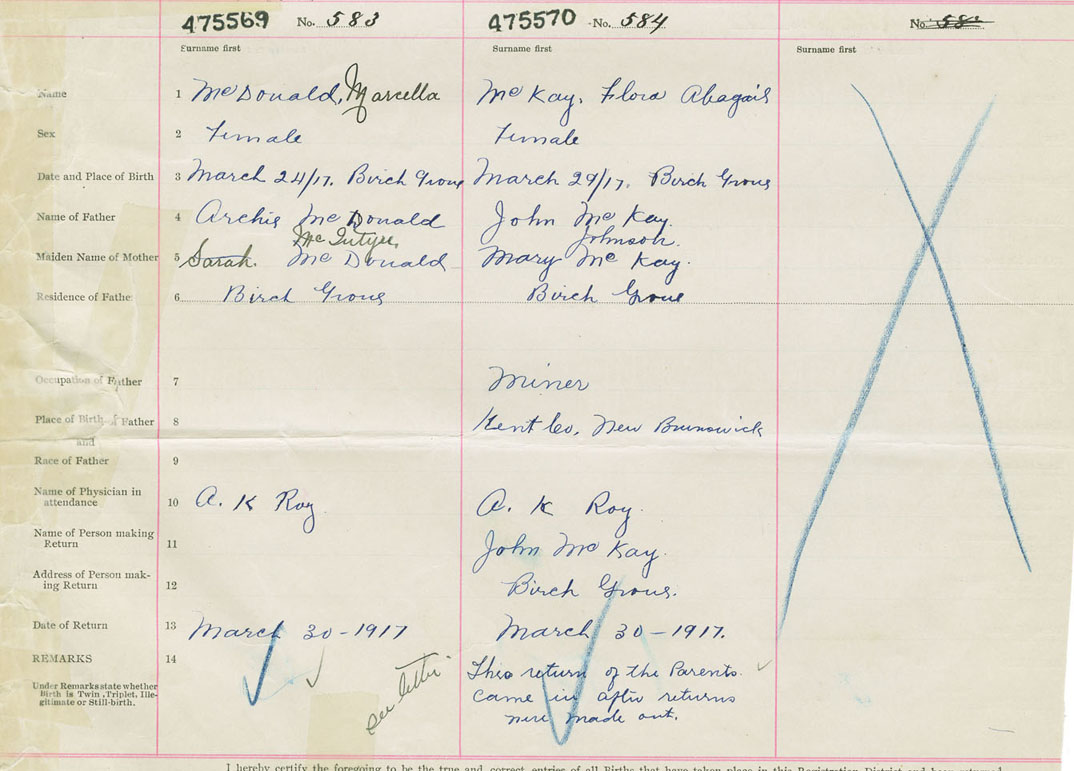 475569 No. 583 475570 No. 584 No. 58
Surname first Surname first Surname first
Name 1 McDonald, Marcella McKay, Flora Abagail
Sex 2 Female Female
Date and Place of Birth 3 March 24/17. Birch Grove March 29/17. Birch Grove
Name of Father 4 Archie McDonald John McKay
McIntyre, Johnson.
Maiden Name of Mother 5 Sarah. McDonald Mary McKay.
Residence of Fathe 6 Birch Grove Birch Grove
Occupation of Father 7 Miner
Place of Birth of Father 8 Kent Co, New Brunswick
and
Race of Father 9
Name of Physician in
attendance 10 A. K Roy A. K Roy.
Name of Person making
Return 11 John McKay.
Address of Person mak-
ing Return 12 Birch Grove.
Date of Return 13 March 30-1917 March 30-1917.
REMARKS 14 This return of the Parents.
Under Remarks state whether
Birth is Twin, Triplet, Ille- see letter came in after returns
gitimate or Still-birth. were made out.
I hereby certify the foregoing to be the true and correct entries of all Births that have taken place in this Registration District